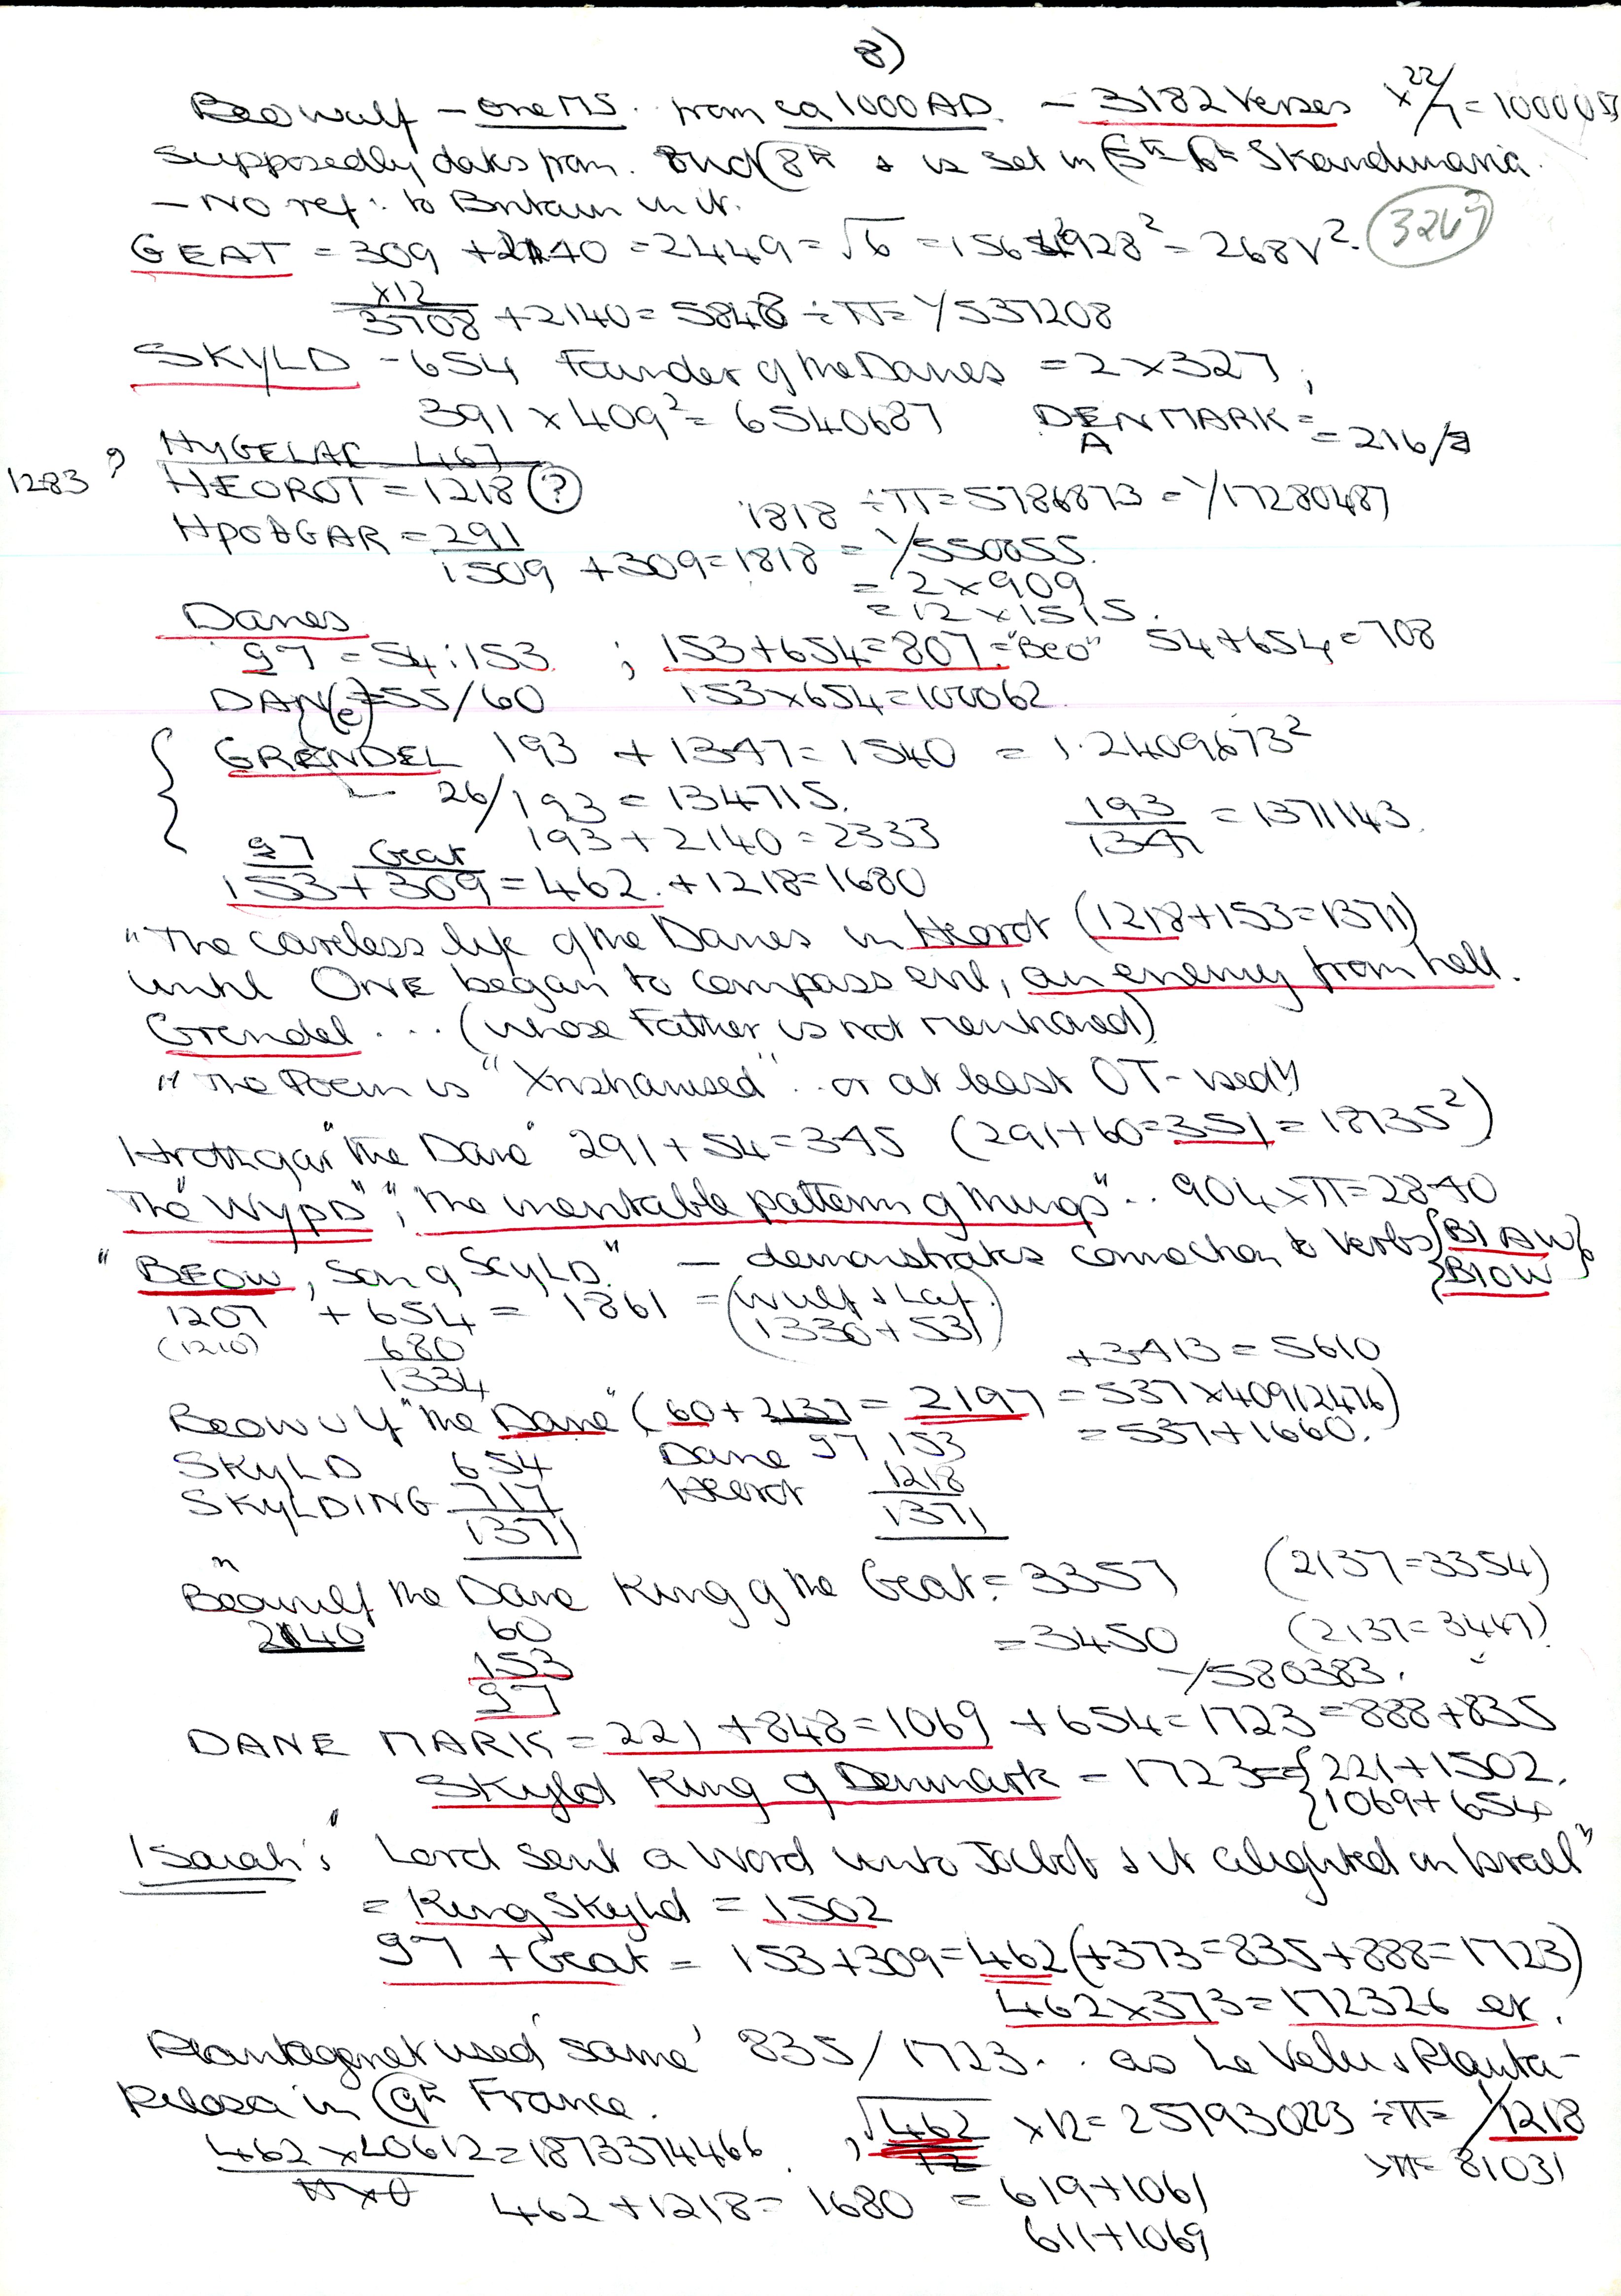 8)
Beowulf - one MS. from ca 1000 AD. - 3182 Verses x 22/7 = 100005
Supposedly dates from 8th & is set in 5th 6th Skandinavia.
- No ref: to Britain in it.
GEAT = 309 + 2140 = 2449 = √6 = 268 V². 3267
x12
3708 + 2140 = 5848 ÷ π = 1/537208
SKYLD - 654 Founder of the Danes = 2 x 327;
391 x 409² = 6540687 DENMARK =
A = 216/
HYGELAC 467
1283 ? HEOROT = 1218 (?)
1818 ÷ π = 5786873 = 1/17280487
HpoθGAR = 291
1509 + 309 = 1818 = 1/550055.
= 2 x 909
= 12 x 1515.
Danes
97 = 54:153 ; 153 + 654 = 807 = "Beo" 54 + 654 = 708
DAN(e) = 55/60 153 x 654 = 100062
GRENDEL 193 + 1347 = 1540 = 1.2409673²
26/193 = 134715.
193/1347 = 1371143.
193 + 2140 = 2333
97 Geat
153 + 309 = 462. + 1218 = 1680
"The careless life of the Danes in Heorot (1218 + 153 = 1371)
until ONE began to compass evil, an enemy from hell.
Grendel ... (whose Father is not mentioned)
"The Poem is "Xristianised" .. or at least OT-ised"
Hrothgar "the Dane" 291 + 54 = 345 (291 + 60 = 351 = 18735²)
The "WYpD", "the inevitable pattern of things" .. 904 x π = 2840
"BEOW, Son of SCyLD." - demonstrates connection to Verbs {BLAW}
{BLOW}
1207 + 654 = 1861 = (Wulf & Laf.)
(1210) 680 (1330 + 531)
1334 + 3413 = 5610
Beowulf "the Dane" (60 + 2137 = 2197 = 537 x 40912476)
= 537 + 1660.
SKYLD 654 Dane 97 153
SKYLDING 717 Heorot 1218
1371 1371
Beowulf the Dane King of the Geat = 3357 (2137 = 3354)
2140 60 = 3450 (2137 = 3447)
153 1/580383.
97
DANE MARK = 221 + 848 = 1069 + 654 = 1723 = 888 + 835
Skyld King of Denmark = 1723 = {221 + 1502.
{1069 + 654
Isaiah: "Lord sent a Word unto Jacob & it alighted in Israel"
= King Skyld = 1502
97 + Geat = 153 + 309 = 462 (+ 373 = 835 + 888 = 1723)
462 x 373 = 172326 er.
Plantagenet used 'same' 835/1723 .. as Le Velu & Planta-
Pelosa in 9th France.
462 x 40612 = 1873374466. , √462 x 12 = 257930223 ÷ π = 1/1218
π x θ 12 x π = 81031
462 + 1218 = 1680 = 619 + 1061
611 + 1069